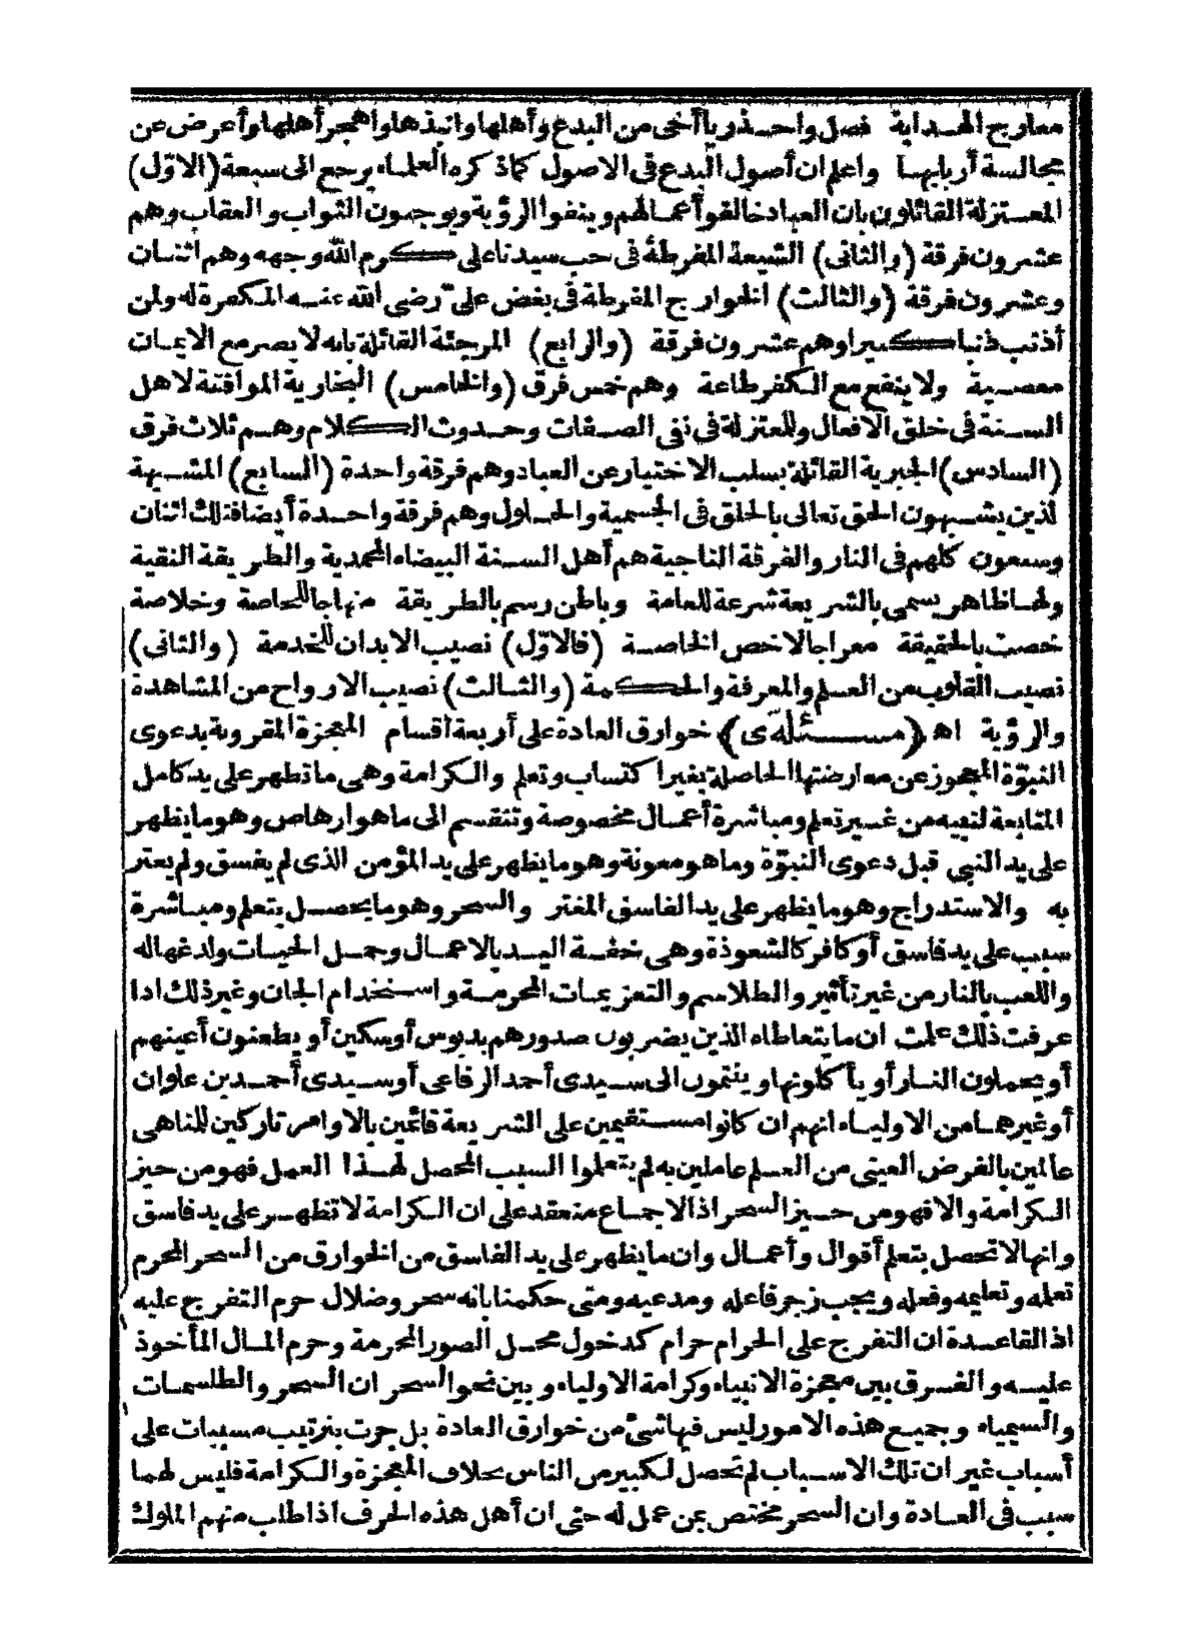 معارج الهداية فصل واحذر يا أخى من البدع وأهلها وانبذها واهجر أهلها وأعرض عن
مجالسة أربابها واعلم ان أصول البدع فى الاصول كماذ كره العلماء يرجع الى سبعة (الاوّل)
المعتزلة القائلون بان العباد خالقوا أعمالهم وينفوا الرؤية ويوجبون الثواب والعقاب وهم
عشرون فرقة (والثانى) الشيعة المفرطة فى حب سيدنا على كرم الله وجهه وهم اثنان
وعشرون فرقة (والثالث) الخوارج المفرطة فى بغض علىّ رضى الله عنه المكفرة له ولمن
أذنب ذنبا كبيرا وهم عشرون فرقة (والرابع) المرجئة القائلة بانه لا يضر مع الايمان
معصية ولا ينفع مع الكفر طاعة وهم خمس فرق (والخامس) النجارية الموافقة لاهل
السنة فى خلق الافعال وللمعتزلة فى نفى الصفات وحدوث الكلام وهم ثلاث فرق
(السادس) الجبرية القائلة بسلب الاختيار عن العباد وهم فرقة واحدة (السابع) المشبهة
لذين يشبهون الحق تعالى بالخلق فى الجسمية والحلول وهم فرقة واحدة أيضا فتلك اثنان
وسبعون كلهم فى النار والفرقة الناجية هم أهل السنة البيضاء المحمدية والطريقة النقية
ولها ظاهر يسمى بالشريعة شرعة للعامة وباطن رسم بالطريقة منهاجا للخاصة وخلاصة
خصت بالحقيقة معراجا لاخص الخاصة (فالاوّل) نصيب الابدان للخدمة (والثانى)
نصيب القلوب من العلم والمعرفة والحكمة (والثالث) نصيب الارواح من المشاهدة
والرؤية اهـ (مسئلة فى) خوارق العادة على أربعة أقسام المعجزة المقرونة بدعوى
النبوّة المعجوز عن معارضتها الحاصلة بغير اكتساب وتعلم والكرامة وهى ما تظهر على يد كامل
المتابعة لنبيه من غير تعلم ومباشرة أعمال مخصوصة وتنقسم الى ما هو ارهاص وهو ما يظهر
على يد النبى قبل دعوى النبوّة وما هو معونة وهو ما يظهر على يد المؤمن الذى لم يفسق ولم يغتر
به والاستدراج وهو ما يظهر على يد الفاسق المغتر والسحر وهو ما يحصل بتعلم ومباشرة
سبب على يد فاسق أو كافر كالشعوذة وهى خفة اليد بالاعمال وحمل الحيات ولدغها له
واللعب بالنار من غير تأثير والطلاسم والتعزيمات المحرمة واستخدام الجان وغير ذلك اذا
عرفت ذلك علمت ان ما يتعاطاه الذين يضربون صدورهم بدبوس أو سكين أو يطعنون أعينهم
أو يحملون النار أو يأكلونها وينتمون الى سيدى أحمد الرفاعى أو سيدى أحمد بن علوان
أو غيرهما من الاولياء انهم ان كانوا مستقيمين على الشريعة قائمين بالاوامر تاركين للمناهى
عالمين بالفرض العينى من العلم عاملين به لم يتعلموا السبب المحصل لهذا العمل فهو من حيز
الكرامة والا فهو من حيز السحر اذ الاجماع منعقد على ان الكرامة لا تظهر على يد فاسق
وانها لا تحصل بتعلم أقوال وأعمال وان ما يظهر على يد الفاسق من الخوارق من السحر المحرم
تعلمه وتعليمه وفعله ويجب زجر فاعله ومدعيه ومتى حكمنا بانه سحر وضلال حرم التفرج عليه
اذ القاعدة ان التفرج على الحرام حرام كدخول محل الصور المحرمة وحرم المال المأخوذ
عليه والفرق بين معجزة الانبياء وكرامة الاولياء وبين نحو السحر ان السحر والطلسمات
والسيمياء وجميع هذه الامور ليس فيها شئ من خوارق العادة بل جرت بترتيب مسببات على
أسباب غير ان تلك الاسباب لم تحصل لكثير من الناس بخلاف المعجزة والكرامة فليس لهما
سبب فى العادة وان السحر مختص بمن عمل له حتى ان أهل هذه الحرف اذا طلب منهم الملوك